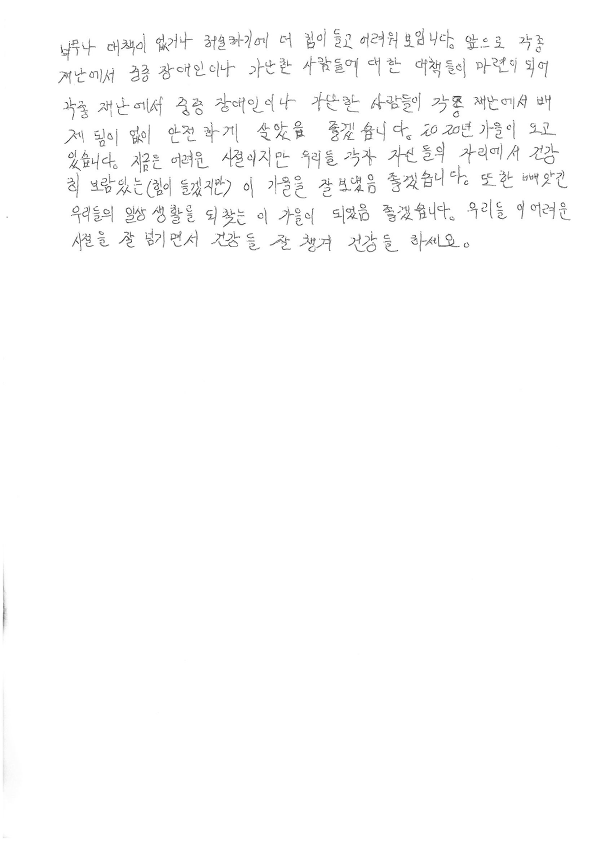 너무나 대책이 없거나 허술하기에 더 힘이들고 어려워 보입니다. 앞으로 각종
재난에서 중증 장애인이나 가난한 사람들에 대한 대책들이 마련이 되어
각종 재난에서 중증 장애인이나 가난한 사람들이 각종 재난에서 배
제 됨이 없이 안전하게 살았음 좋겠습니다. 2020년 가을이 오고
있습니다. 지금은 어려운 시절이지만 우리들 각자 자신들의 자리에서 건강
히 보람있는(힘이 들겠지만) 이 가을을 잘 보냈음 좋겠습니다. 또한 빼앗긴
우리들의 일상 생활를 되찾는 이 가을이 되었음 좋겠습니다. 우리들 이 어려운
시절을 잘 넘기면서 건강들 잘 챙겨 건강들 하세요.